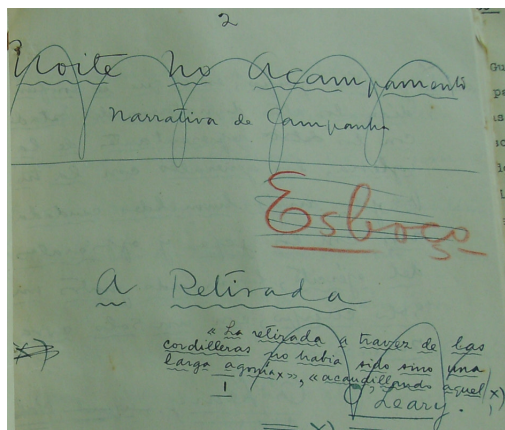 2
Noite no acampamento
Narrativa de Campanha
Esboço
A Retirada
« La retirada a travez de las
cordilleras no habia sido sino una
larga agonia x», «acaudillando aquel x)
1
O'Leary.
x)